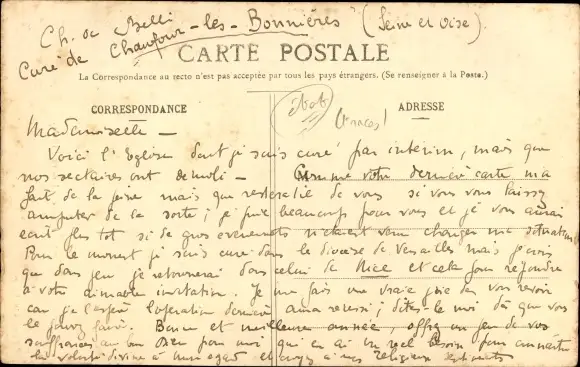 Ch. de Belli
Curé de Chaufour-les-Bonnières (Seine et Oise).
CARTE POSTALE
La Correspondance au recto n'est pas acceptée par tous les pays étrangers. (Se renseigner à la Poste.)
CORRESPONDANCE
ADRESSE
Mademoiselle -
Voici l'Eglise dont je suis curé par intérim, mais que
nos sectaires ont démoli - Comme votre dernière carte m'a
fait de la peine mais que restera-t-il de vous si vous vous laissez
amputer de la sorte ; je prie beaucoup pour vous et je vous aurais
écrit plus tôt si de gros évènements n'étaient venu changer ma situation
Pour le moment je suis curé dans le diocèse de Versailles mais je crois
que dans peu je retournerai dans celui de Nice et cela pour répondre
à votre aimable invitation. Je me fais une vraie joie de vous revoir
car je l'espère l'opération dernière aura réussi ; dites-le moi dès que vous
le pourrez faire. Bonne et meilleure année, offrez un peu de vos
souffrances au bon Dieu pour moi qui en ai un réel besoin pour connaître
la volonté divine à mon égard et croyez à mes religieux sentiments